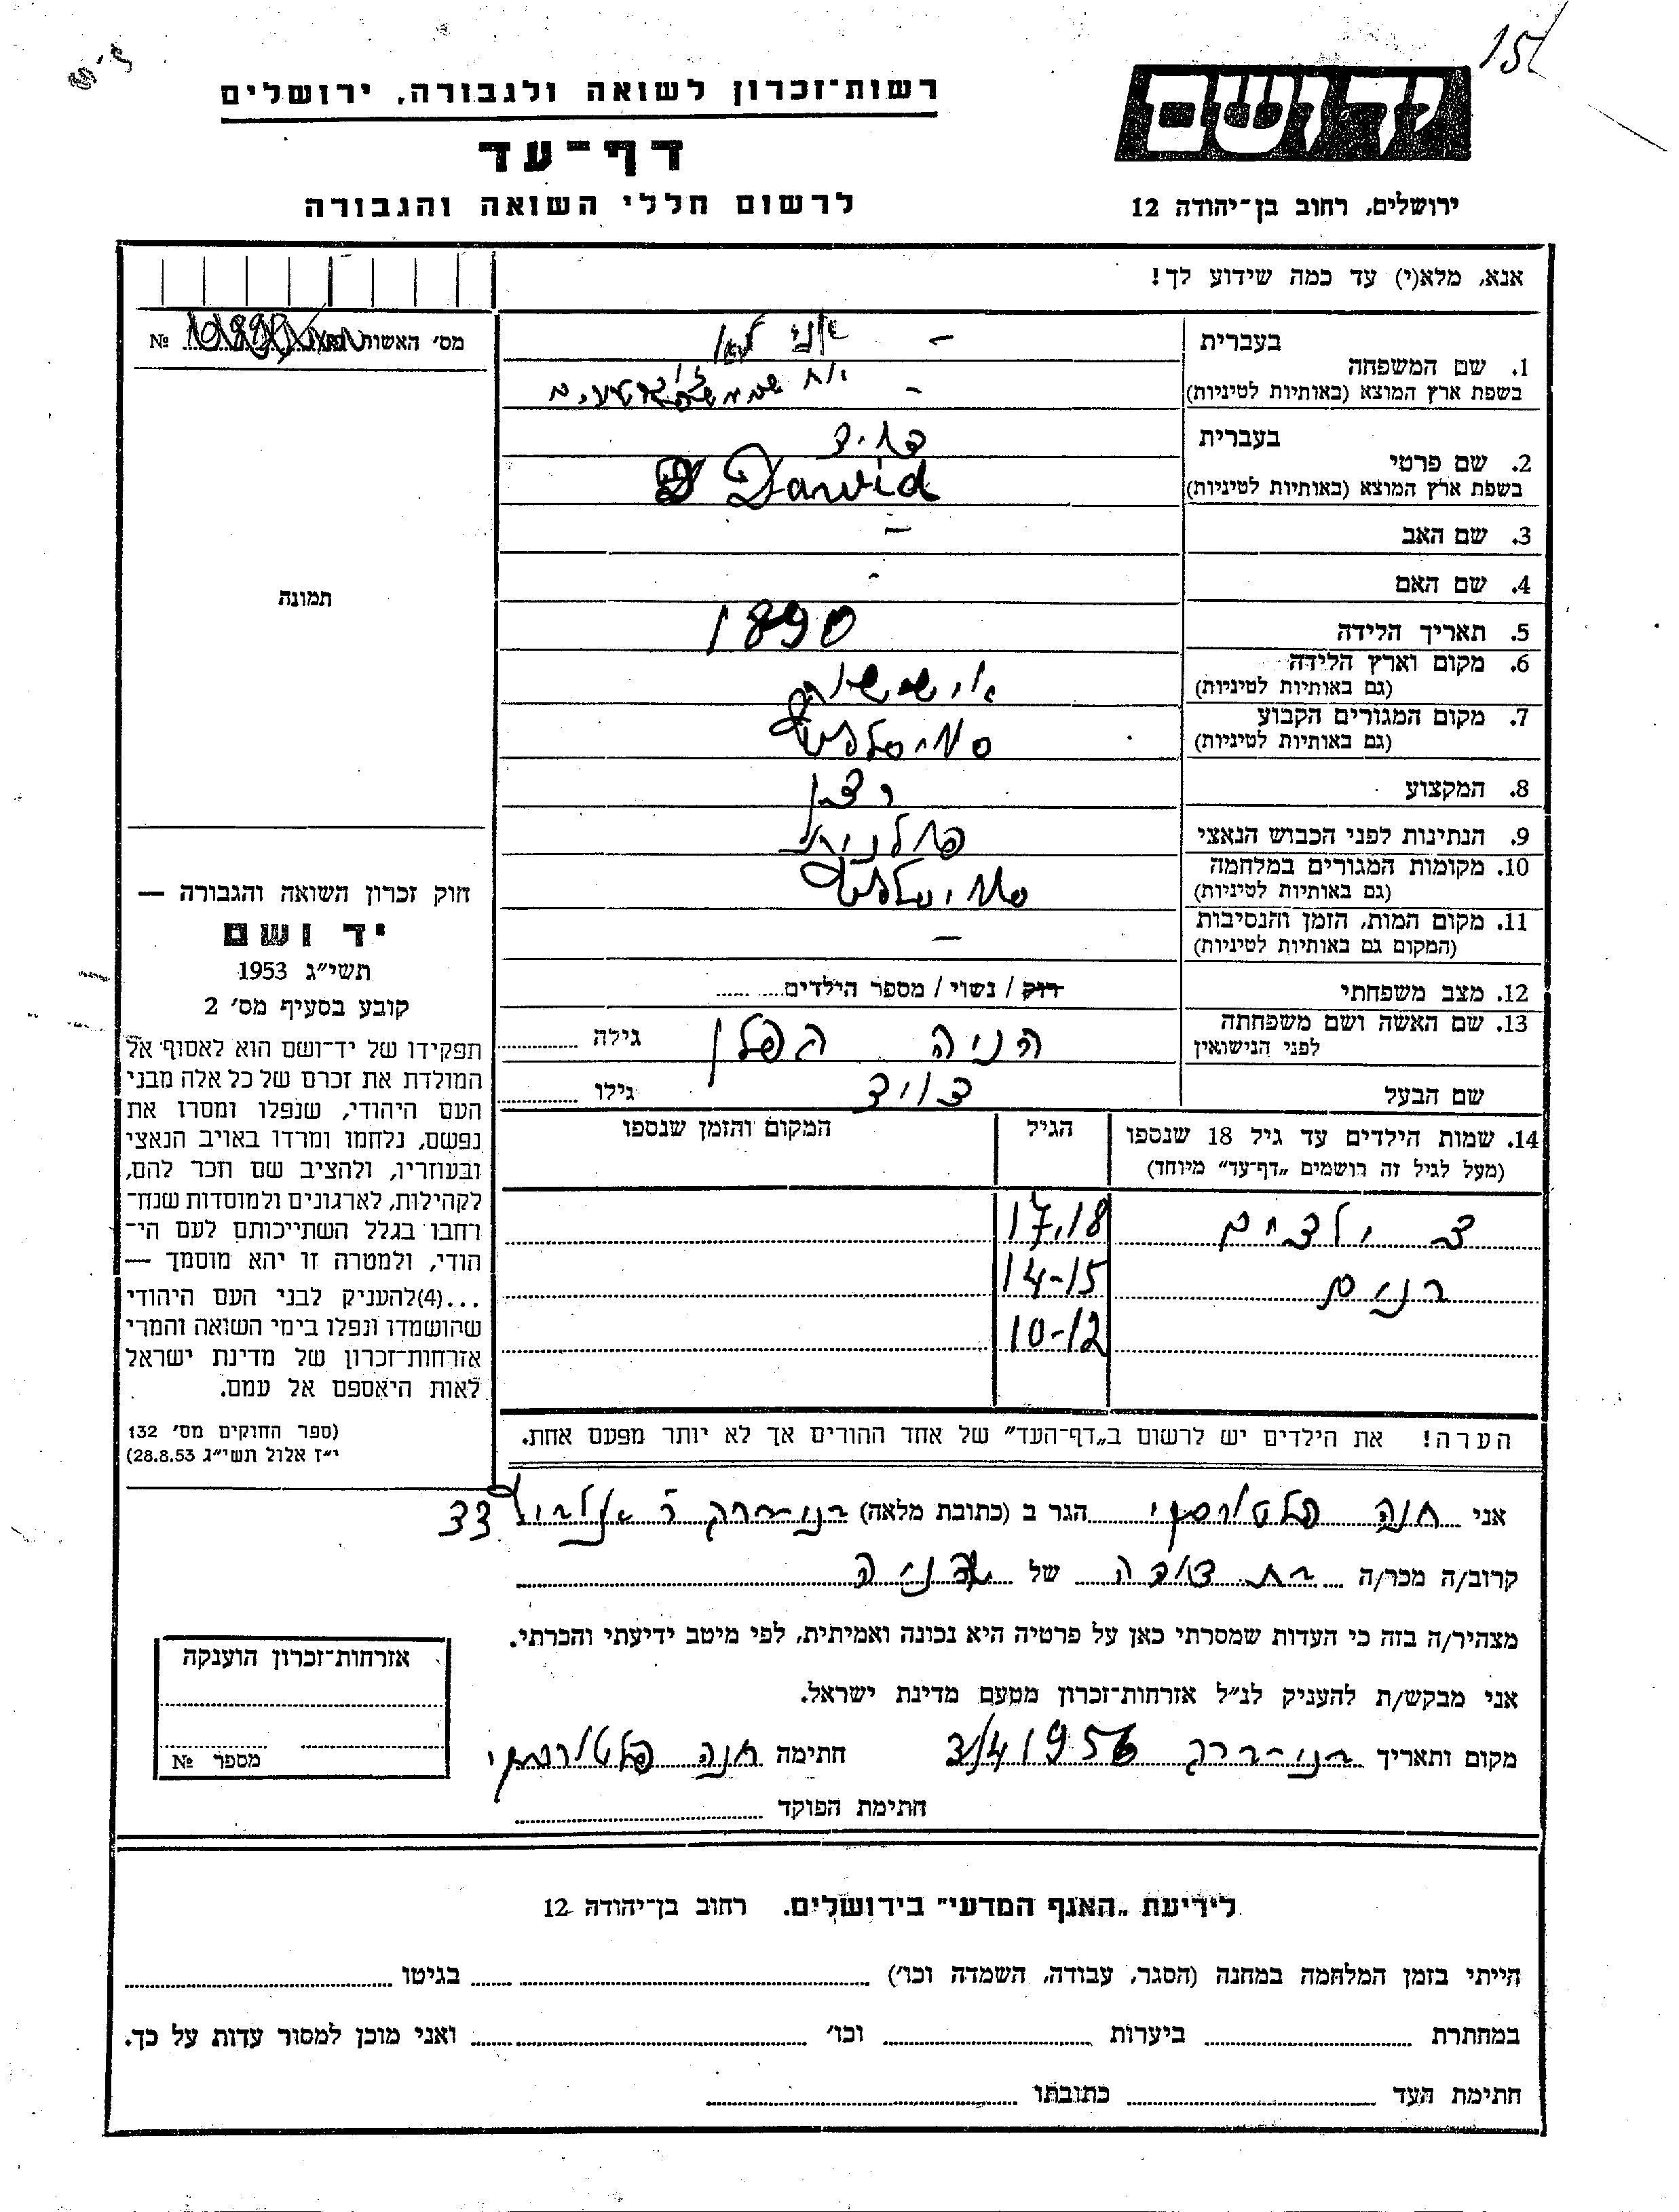 15/
רשות־זכרון לשואה ולגבורה, ירושלים
יד ושם
דף־עד
לרשום חללי השואה והגבורה
ירושלים, רחוב בן־יהודה 12
אנא, מלא(י) עד כמה שידוע לך!
מס׳ האשות №
1. שם המשפחה
בעברית – אני לא
בשפת ארץ המוצא (באותיות לטיניות) –
2. שם פרטי
בעברית
בשפת ארץ המוצא (באותיות לטיניות) Dawid
3. שם האב –
4. שם האם -
5. תאריך הלידה 1890
6. מקום וארץ הלידה
(גם באותיות לטיניות)
7. מקום המגורים הקבוע
(גם באותיות לטיניות)
8. המקצוע
9. הנתינות לפני הכבוש הנאצי פולנית
10. מקומות המגורים במלחמה
(גם באותיות לטיניות)
11. מקום המות, הזמן והנסיבות –
(המקום גם באותיות לטיניות)
12. מצב משפחתי רוק / נשוי / מספר הילדים
13. שם האשה ושם משפחתה הניה קפלן גילה
לפני הנישואין
שם הבעל דויד גילו
14. שמות הילדים עד גיל 18 שנספו הגיל המקום והזמן שנספו
(מעל לגיל זה רושמים „דף־עד” מיוחד)
ילדים 17,18
בנים 14-15
10-12
הערה! את הילדים יש לרשום ב„דף־העד” של אחד ההורים אך לא יותר מפעם אחת.
תמונה
חוק זכרון השואה והגבורה —
יד ושם
תשי״ג 1953
קובע בסעיף מס׳ 2
תפקידו של יד־ושם הוא לאסוף אל
המולדת את זכרם של כל אלה מבני
העם היהודי, שנפלו ומסרו את
נפשם, נלחמו ומרדו באויב הנאצי
ובעוזריו, ולהציב שם וזכר להם,
לקהילות, לארגונים ולמוסדות שנח־
רחבו בגלל השתייכותם לעם הי־
הודי, ולמטרה זו יהא מוסמך —
...(4)להעניק לבני העם היהודי
שהושמדו ונפלו בימי השואה והמרי
אזרחות־זכרון של מדינת ישראל
לאות היאספם אל עמם.
(ספר החוקים מס׳ 132
י״ז אלול תשי״ג 28.8.53)
אני חנה הגר ב (כתובת מלאה) בני-ברק 33
קרוב/ה מכר/ה בת דודה של הניה
מצהיר/ה בזה כי העדות שמסרתי כאן על פרטיה היא נכונה ואמיתית, לפי מיטב ידיעתי והכרתי.
אני מבקש/ת להעניק לנ״ל אזרחות־זכרון מטעם מדינת ישראל.
מקום ותאריך בני-ברק 1956 חתימה חנה
חתימת הפוקד
אזרחות־זכרון הוענקה
מספר №
לידיעת „האנף המדעי” בירושלים. רחוב בן־יהודה 12
הייתי בזמן המלחמה במחנה (הסגר, עבודה, השמדה וכו׳) בגיטו
במחתרת ביערות וכו׳ ואני מוכן למסור עדות על כך.
חתימת העד כתובתו